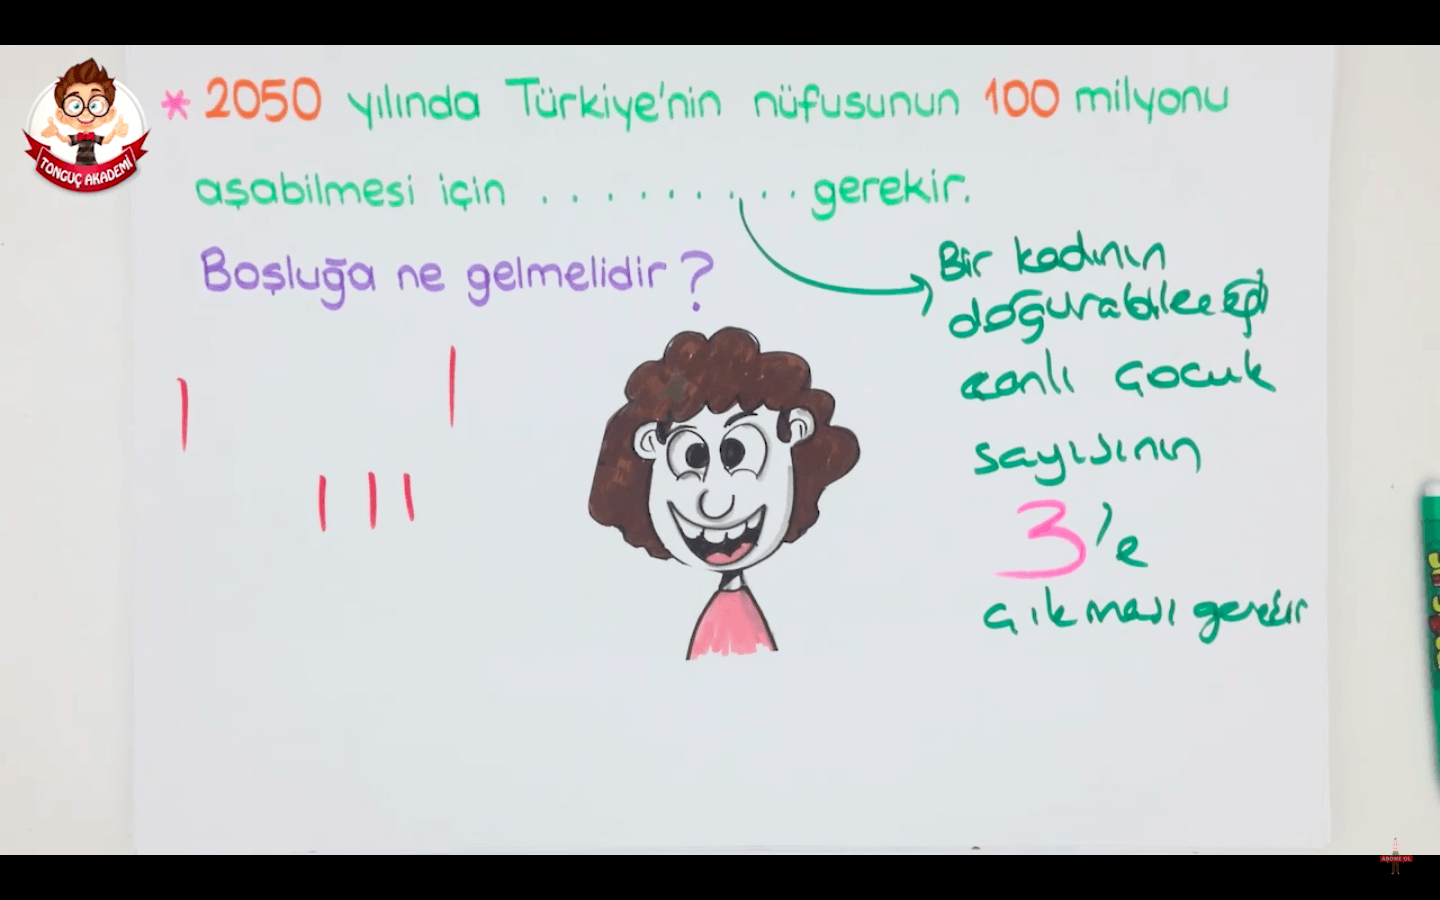 TONGUÇ AKADEMİ
* 2050 yılında Türkiye'nin nüfusunun 100 milyonu
aşabilmesi için . . . . . . . . . . gerekir.
Boşluğa ne gelmelidir?
Bir kadının
doğurabileceği
canlı çocuk
sayısının
3'e
çıkması gerekir
ABONE OL